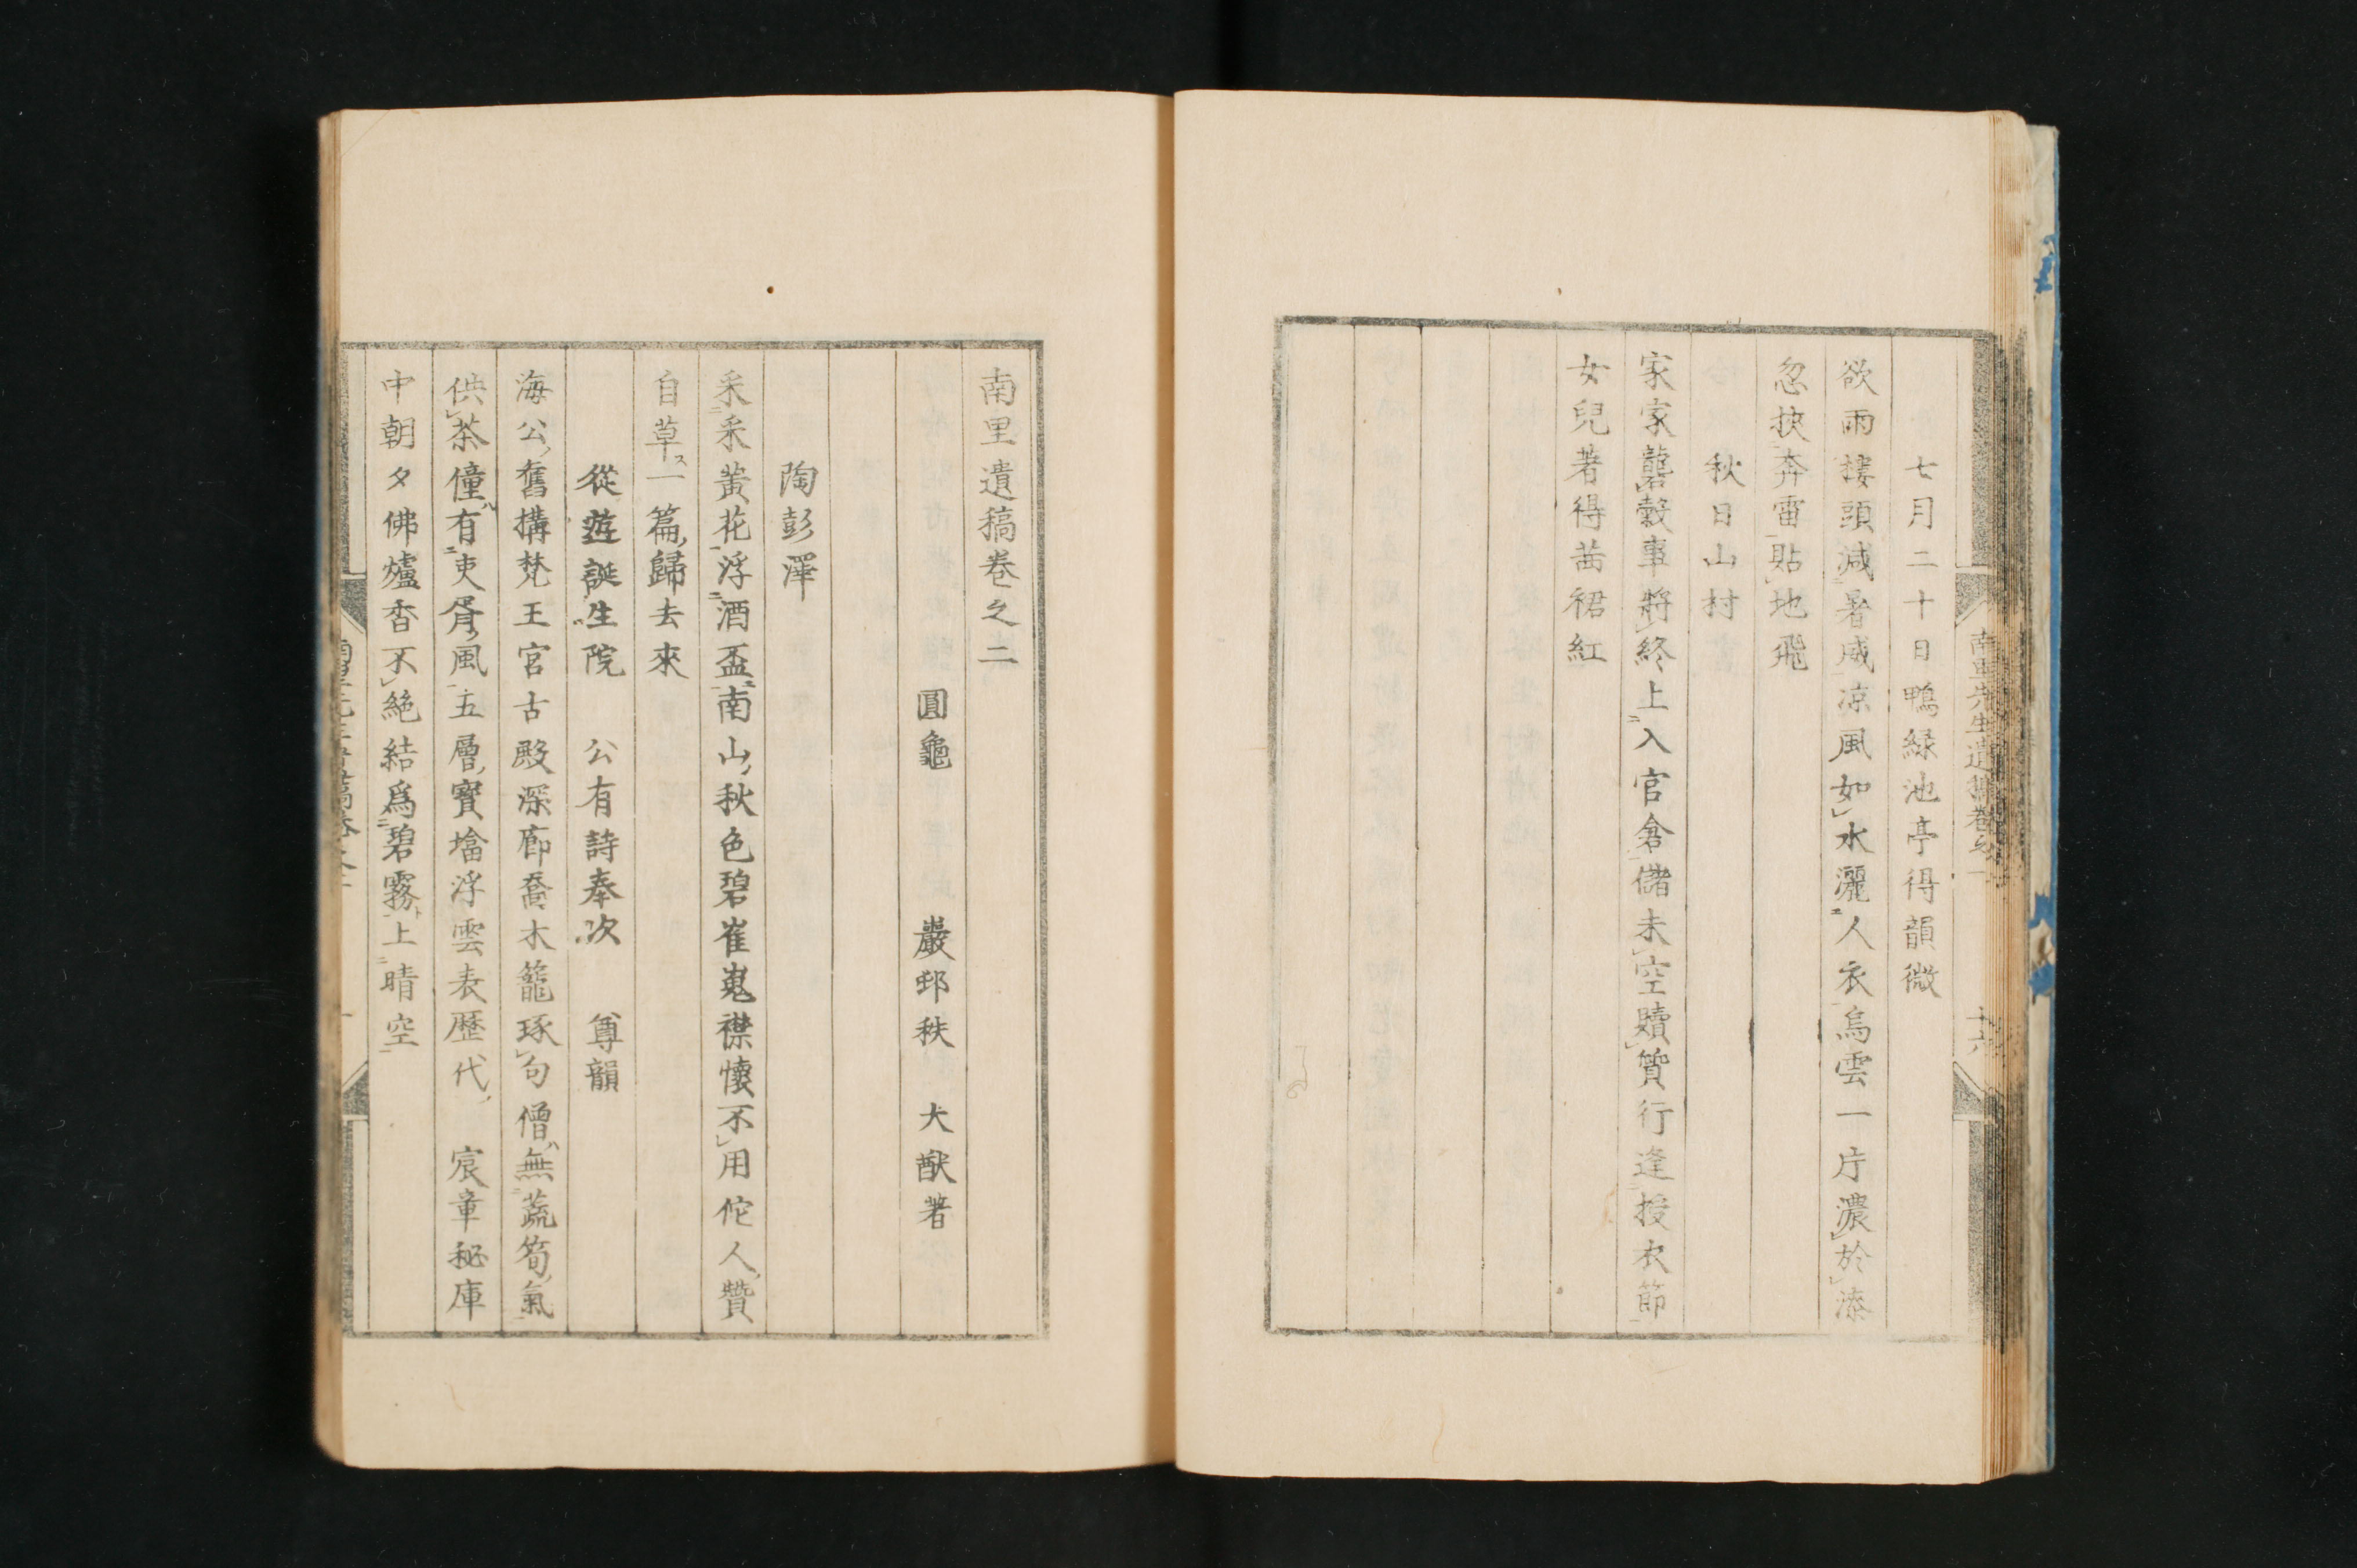 七月二十日鴨緑池亭得韻微
欲雨樓頭減暑威凉風如水灑人衣烏雲一片濃於漆
忽挾奔雷貼地飛
秋日山村
家家礱穀事將終上入官倉儲未空贖質行逢授衣節
女兒著得茜裙紅
南里先生遺稿卷之一
十六
南里遺稿卷之二
圓龜 巖邨秩 大猷著
陶彭澤
采采黃花浮酒盃南山秋色碧崔嵬襟懷不用佗人贊
自草一篇歸去來
從遊誕生院 公有詩奉次 尊韻
海公舊搆梵王宮古殿深廊喬木籠琢句僧無蔬筍氣
供茶僮有吏胥風五層寶墖浮雲表歷代 宸章秘庫
中朝夕佛爐香不絕結爲碧霧上晴空